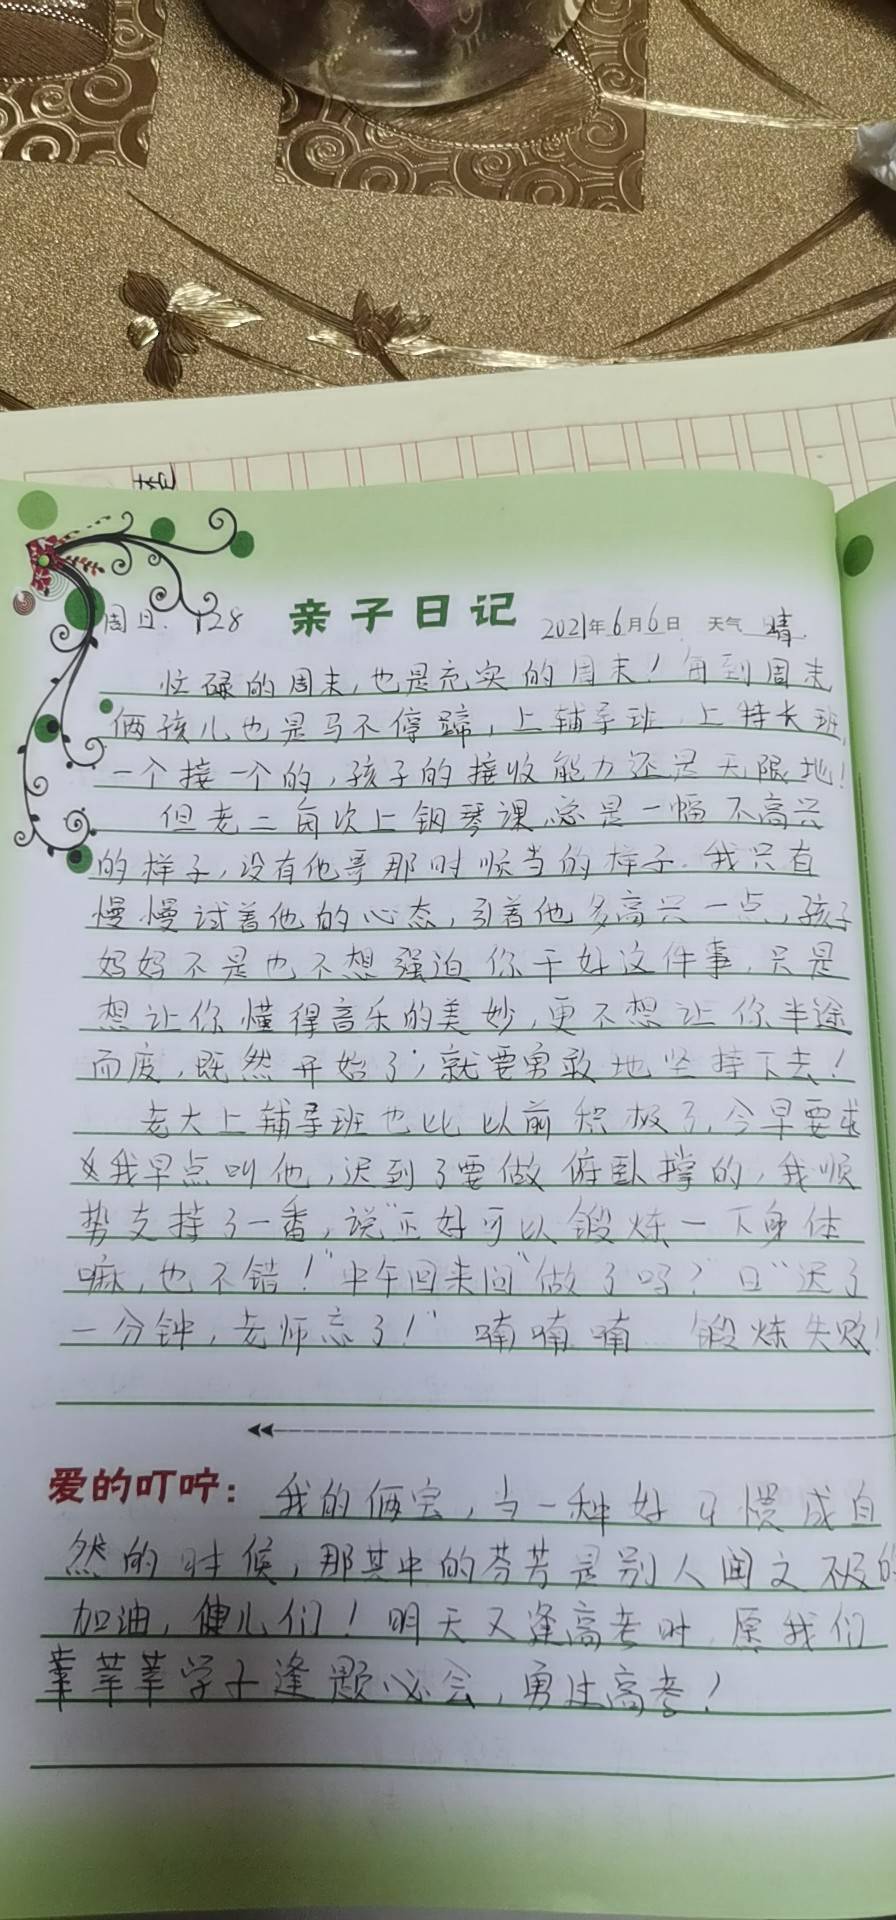 周日. 128 亲子日记 2021年6月6日 天气 晴
忙碌的周末,也是充实的周末!每到周末
俩孩儿也是马不停蹄,上辅导班,上特长班,
一个接一个的,孩子的接收能力还是无限地!
但老二每次上钢琴课,总是一幅不高兴
的样子,没有他哥那时顺当的样子.我只有
慢慢试着他的心态,引着他多高兴一点,孩子
妈妈不是也不想强迫你干好这件事,只是
想让你懂得音乐的美妙,更不想让你半途
而废,既然开始了,就要勇敢地坚持下去!
老大上辅导班也比以前积极了,今早要求
我早点叫他,迟到了要做俯卧撑的,我顺
势支持了一番,说"正好可以锻炼一下身体
嘛,也不错!"中午回来问"做了吗?"曰"迟了
一分钟,老师忘了!"喃喃喃 锻炼失败!
爱的叮咛: 我的俩宝,当一种好习惯成自
然的时候,那其中的芬芳是别人闻之不及的
加油,健儿们!明天又逢高考时,愿我们
莘莘学子逢题必会,勇过高考!